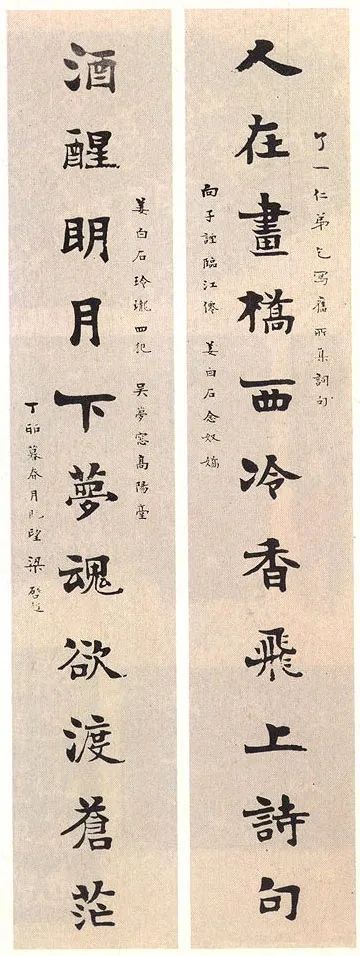 了一仁弟乞寫舊所集詞句
人在畫橋西冷香飛上詩句
向子諲臨江僊 姜白石念奴嬌
姜白石玲瓏四犯 吳夢窓高陽臺
酒醒明月下夢魂欲渡蒼茫
丁卯暮春月既望 梁啓超